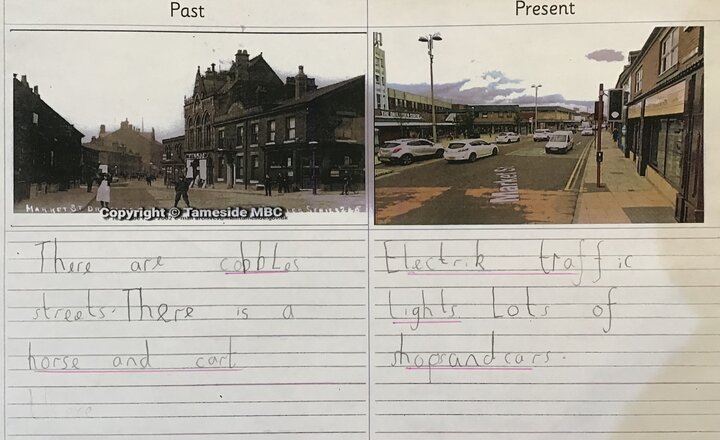 Past
Present
MARKET ST. DR
Copyright © Tameside MBC
Market St
There are cobbles
streets. There is a
horse and cart
There
Electrik traffic
lights Lots of
shops and cars.